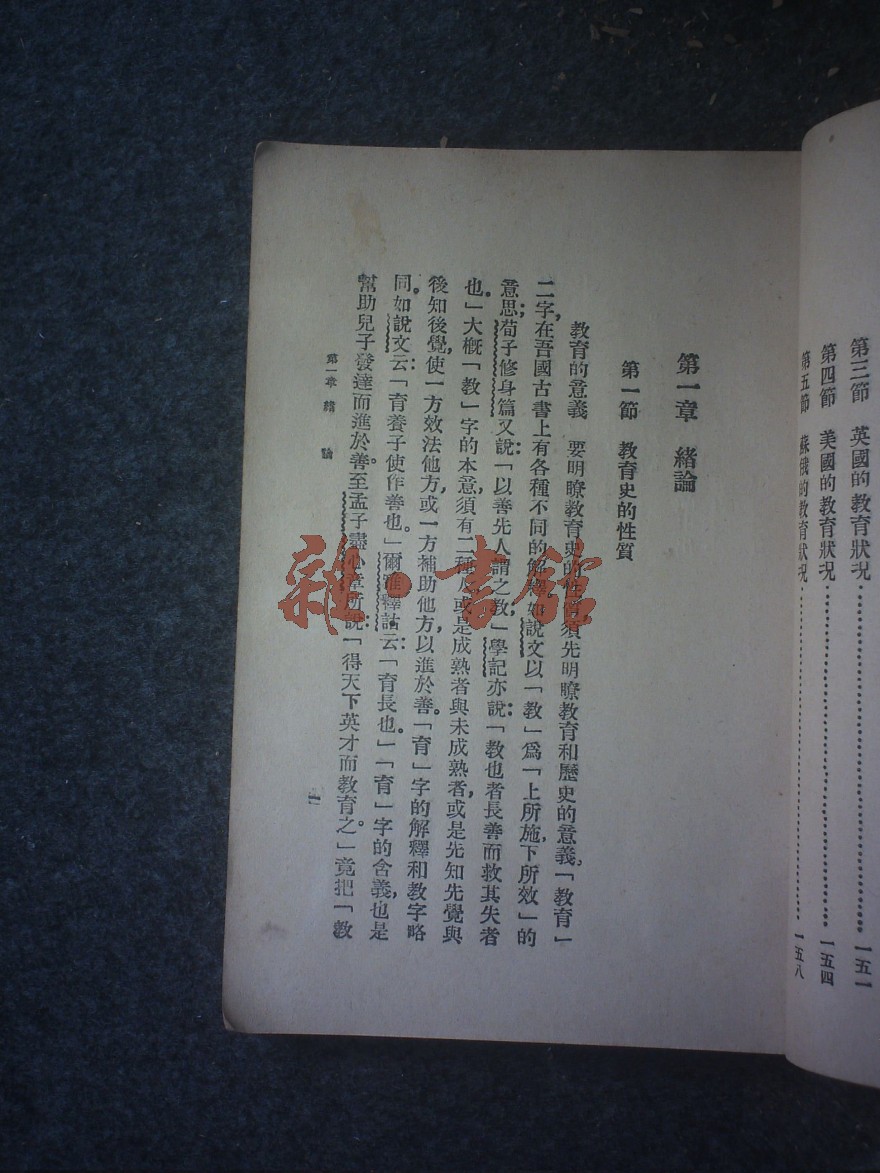 第三節 英國的教育狀況……………………一五一
第四節 美國的教育狀況……………………一五四
第五節 蘇俄的教育狀況……………………一五八
第一章 緒論
第一節 教育史的性質
教育的意義 要明瞭教育史的性質,須先明瞭教育和歷史的意義。「教育」
二字,在吾國古書上有各種不同的解釋。如說文以「教」爲「上所施下所效」的
意思;荀子修身篇又說:「以善先人謂之教;」學記亦說:「教也者長善而救其失者
也。」大概「教」字的本意,須有二種人,或是成熟者與未成熟者,或是先知先覺與
後知後覺,使一方效法他方,或一方補助他方,以進於善。「育」字的解釋和教字略
同。如說文云:「育養子使作善也。」爾雅釋詁云:「育長也。」「育」字的含義,也是
幫助兒子發達而進於善。至孟子盡心章所說:「得天下英才而教育之。」竟把「教
第一章 緒論
一
雜·書館